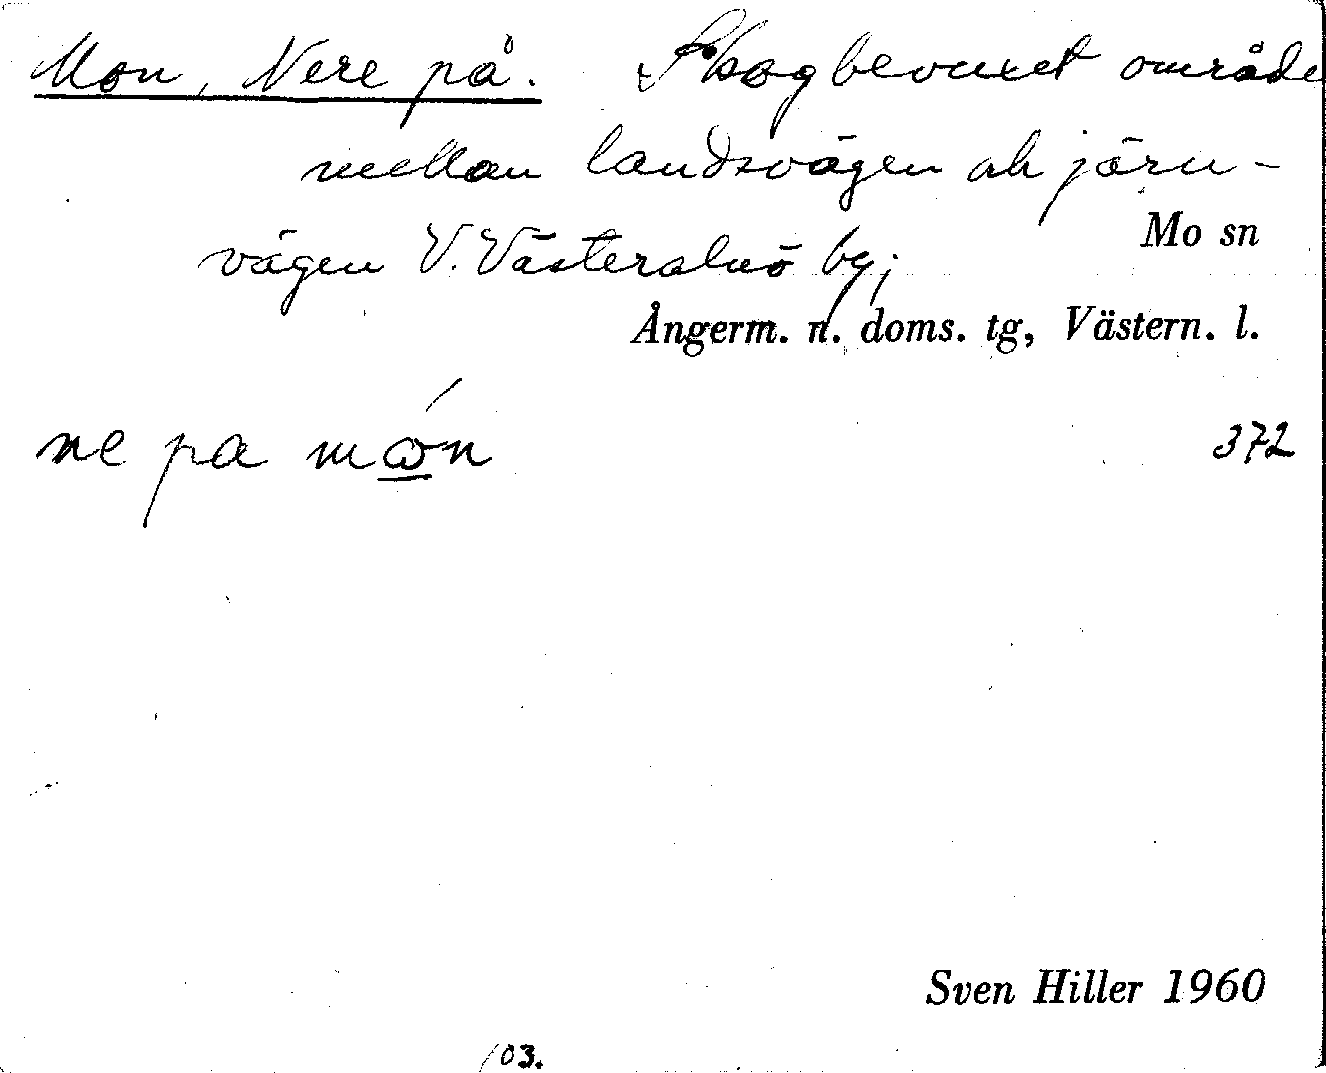 Mon, Nere på. Skogbevuxet område
mellan landsvägen ah järn-
vägen V. Västeralnö by;
Mo sn
Ångerm. n. doms. tg, Västern. l.
ne pa mɷ́n
372
Sven Hiller 1960
103.